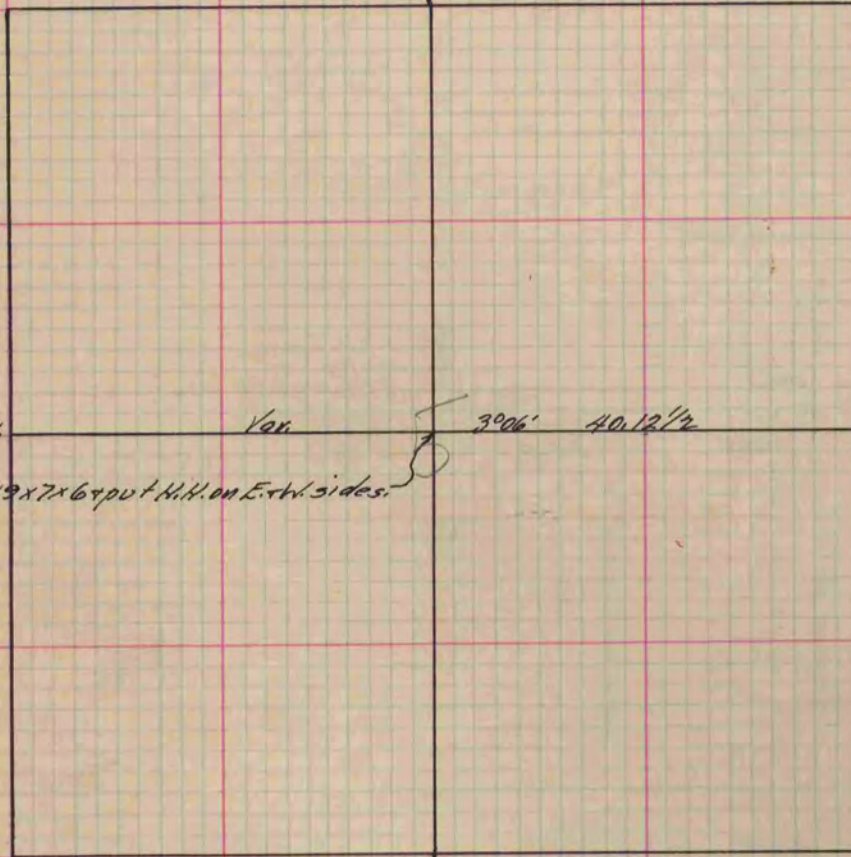 Var. 3°06' 40.12 1/2
9x7x6 & put H.H. on E. & W. sides.